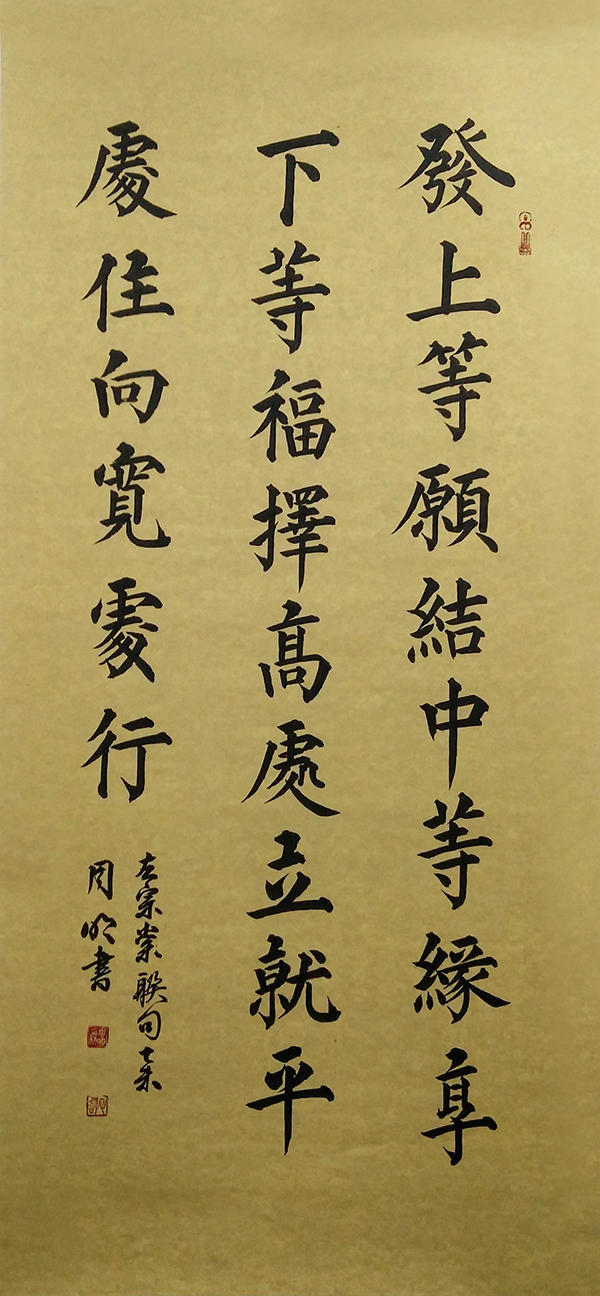 發上等願結中等緣享
下等福擇高處立就平
處住向寬處行
左宗棠聯句乙未
周明書